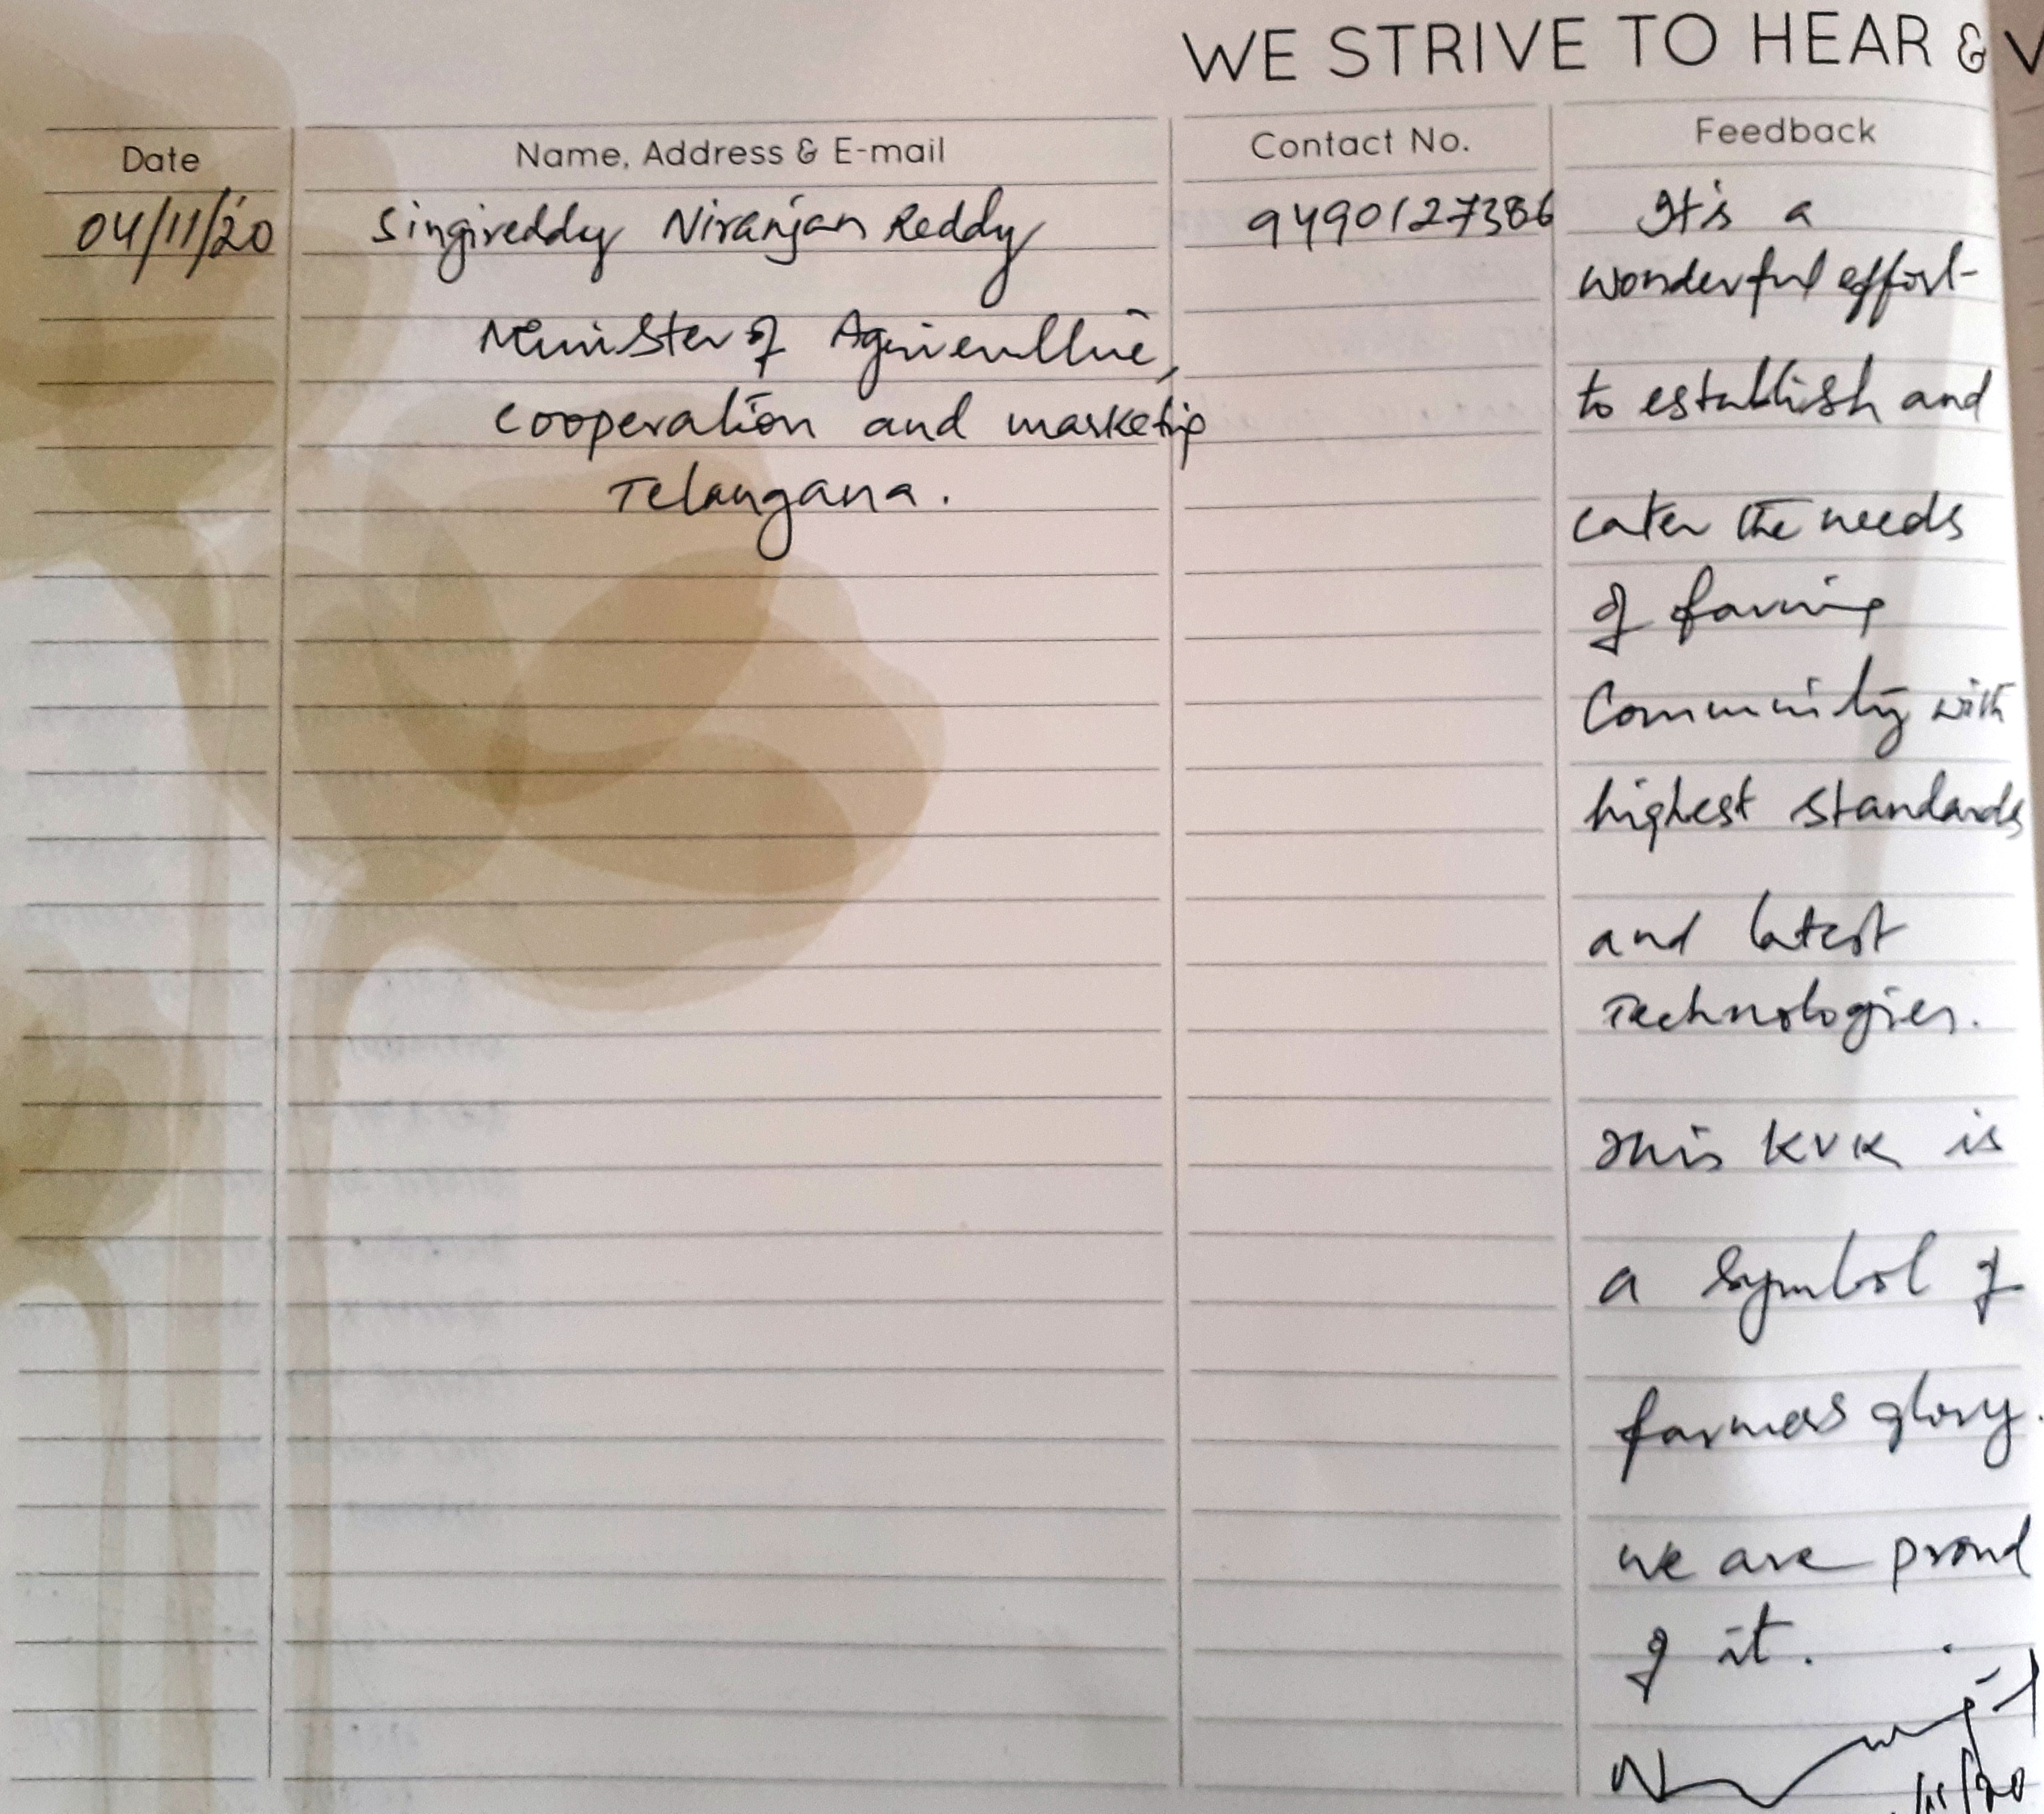 WE STRIVE TO HEAR &
Date Name, Address & E-mail Contact No. Feedback
04/11/20 Singireddy Niranjan Reddy 9490127386 It's a
wonderful effort
Minister of Agriculture,
to establish and
cooperation and marketing
Telangana.
cater the needs
of farming
Community with
highest standards
and latest
Technologies.
This KVK is
a symbol of
farmers glory.
we are proud
of it.
/11/20